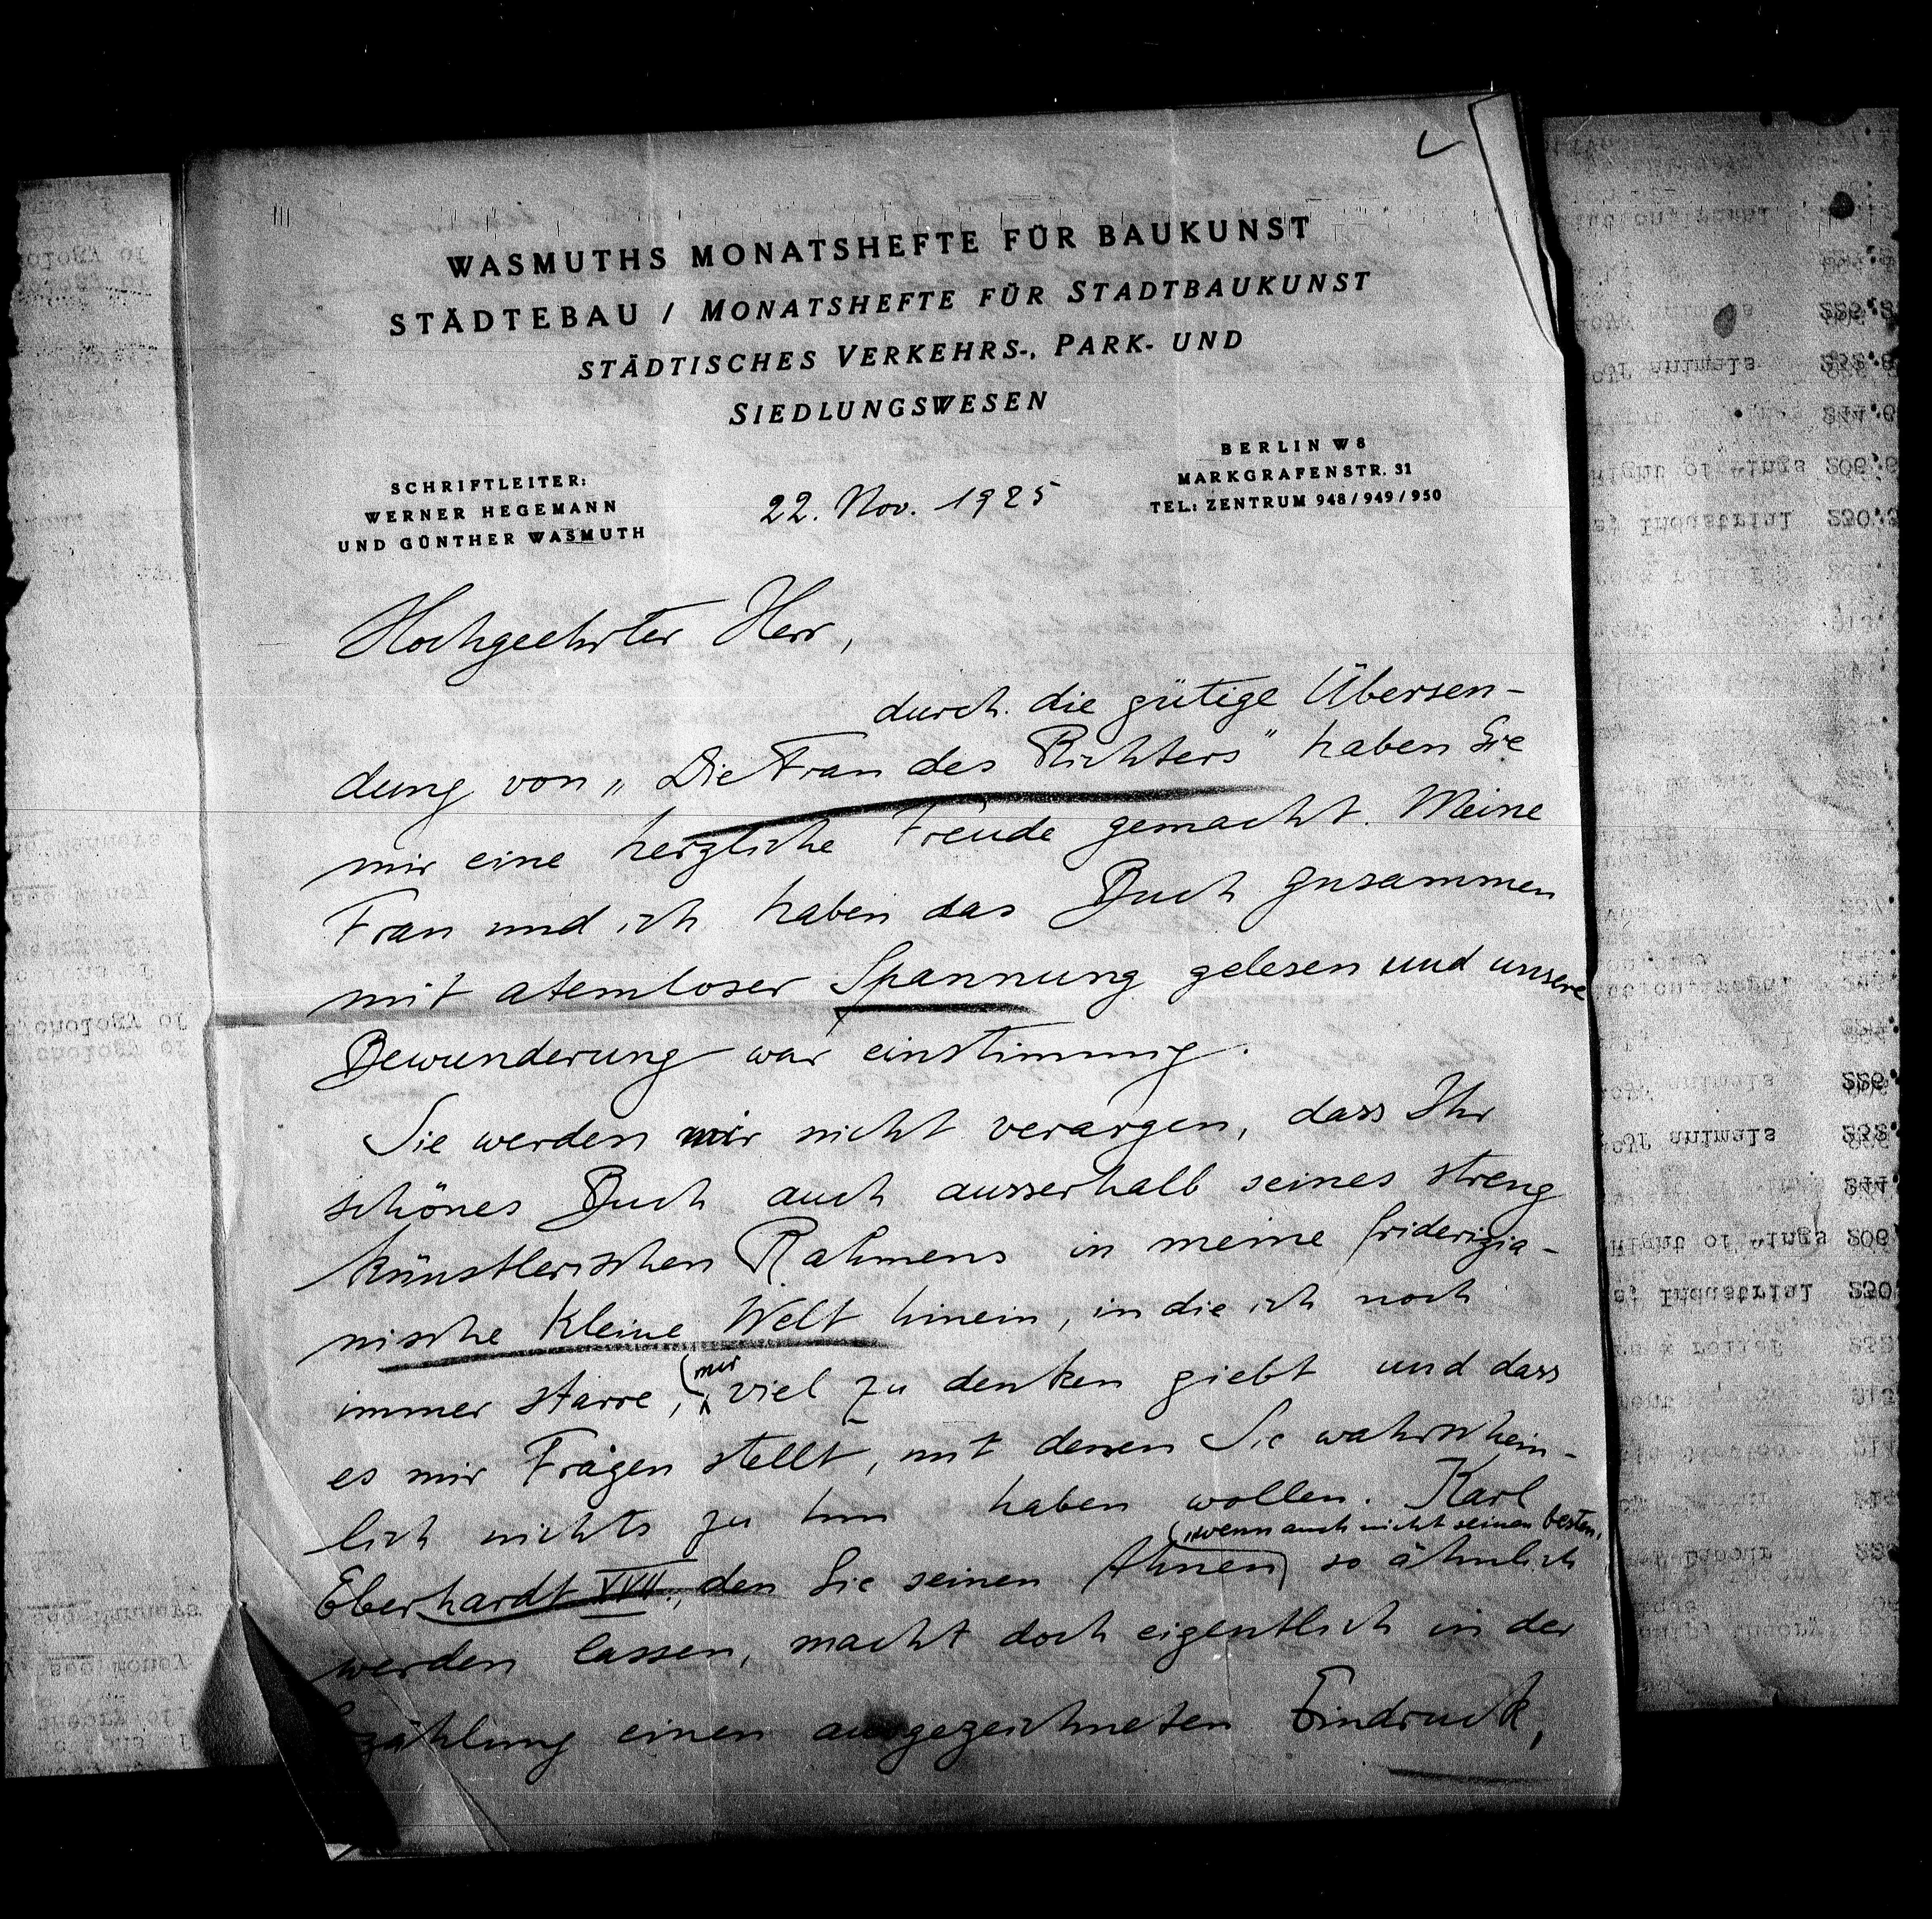 WASMUTHS MONATSHEFTE FÜR BAUKUNST
STÄDTEBAU / MONATSHEFTE FÜR STADTBAUKUNST
STÄDTISCHES VERKEHRS-, PARK- UND
SIEDLUNGSWESEN
SCHRIFTLEITER:
WERNER HEGEMANN
UND GÜNTHER WASMUTH
22. Nov. 1925
BERLIN W 8
MARKGRAFENSTR. 31
TEL: ZENTRUM 948/949/950
Hochgeehrter Herr,
durch die gütige Übersen-
dung von „Die Frau des Richters" haben Sie
mir eine herzliche Freude gemacht. Meine
Frau und ich haben das Buch zusammen
mit atemloser Spannung gelesen und unsere
Bewunderung war einstimmig.
Sie werden mir nicht verargen, dass Ihr
schönes Buch auch ausserhalb seines streng
künstlerischen Rahmens in meine friderizia-
nische kleine Welt hinein, in die ich noch
immer starre, mir viel zu denken giebt und dass
es mir Fragen stellt, mit denen Sie wahrschein-
lich nichts zu tun haben wollen. Karl
Eberhardt XVII., den Sie seinen Ahnen, wenn auch nicht seinen besten, so ähnlich
werden lassen, macht doch eigentlich in der
Erzählung einen ausgezeichneten Eindruck,